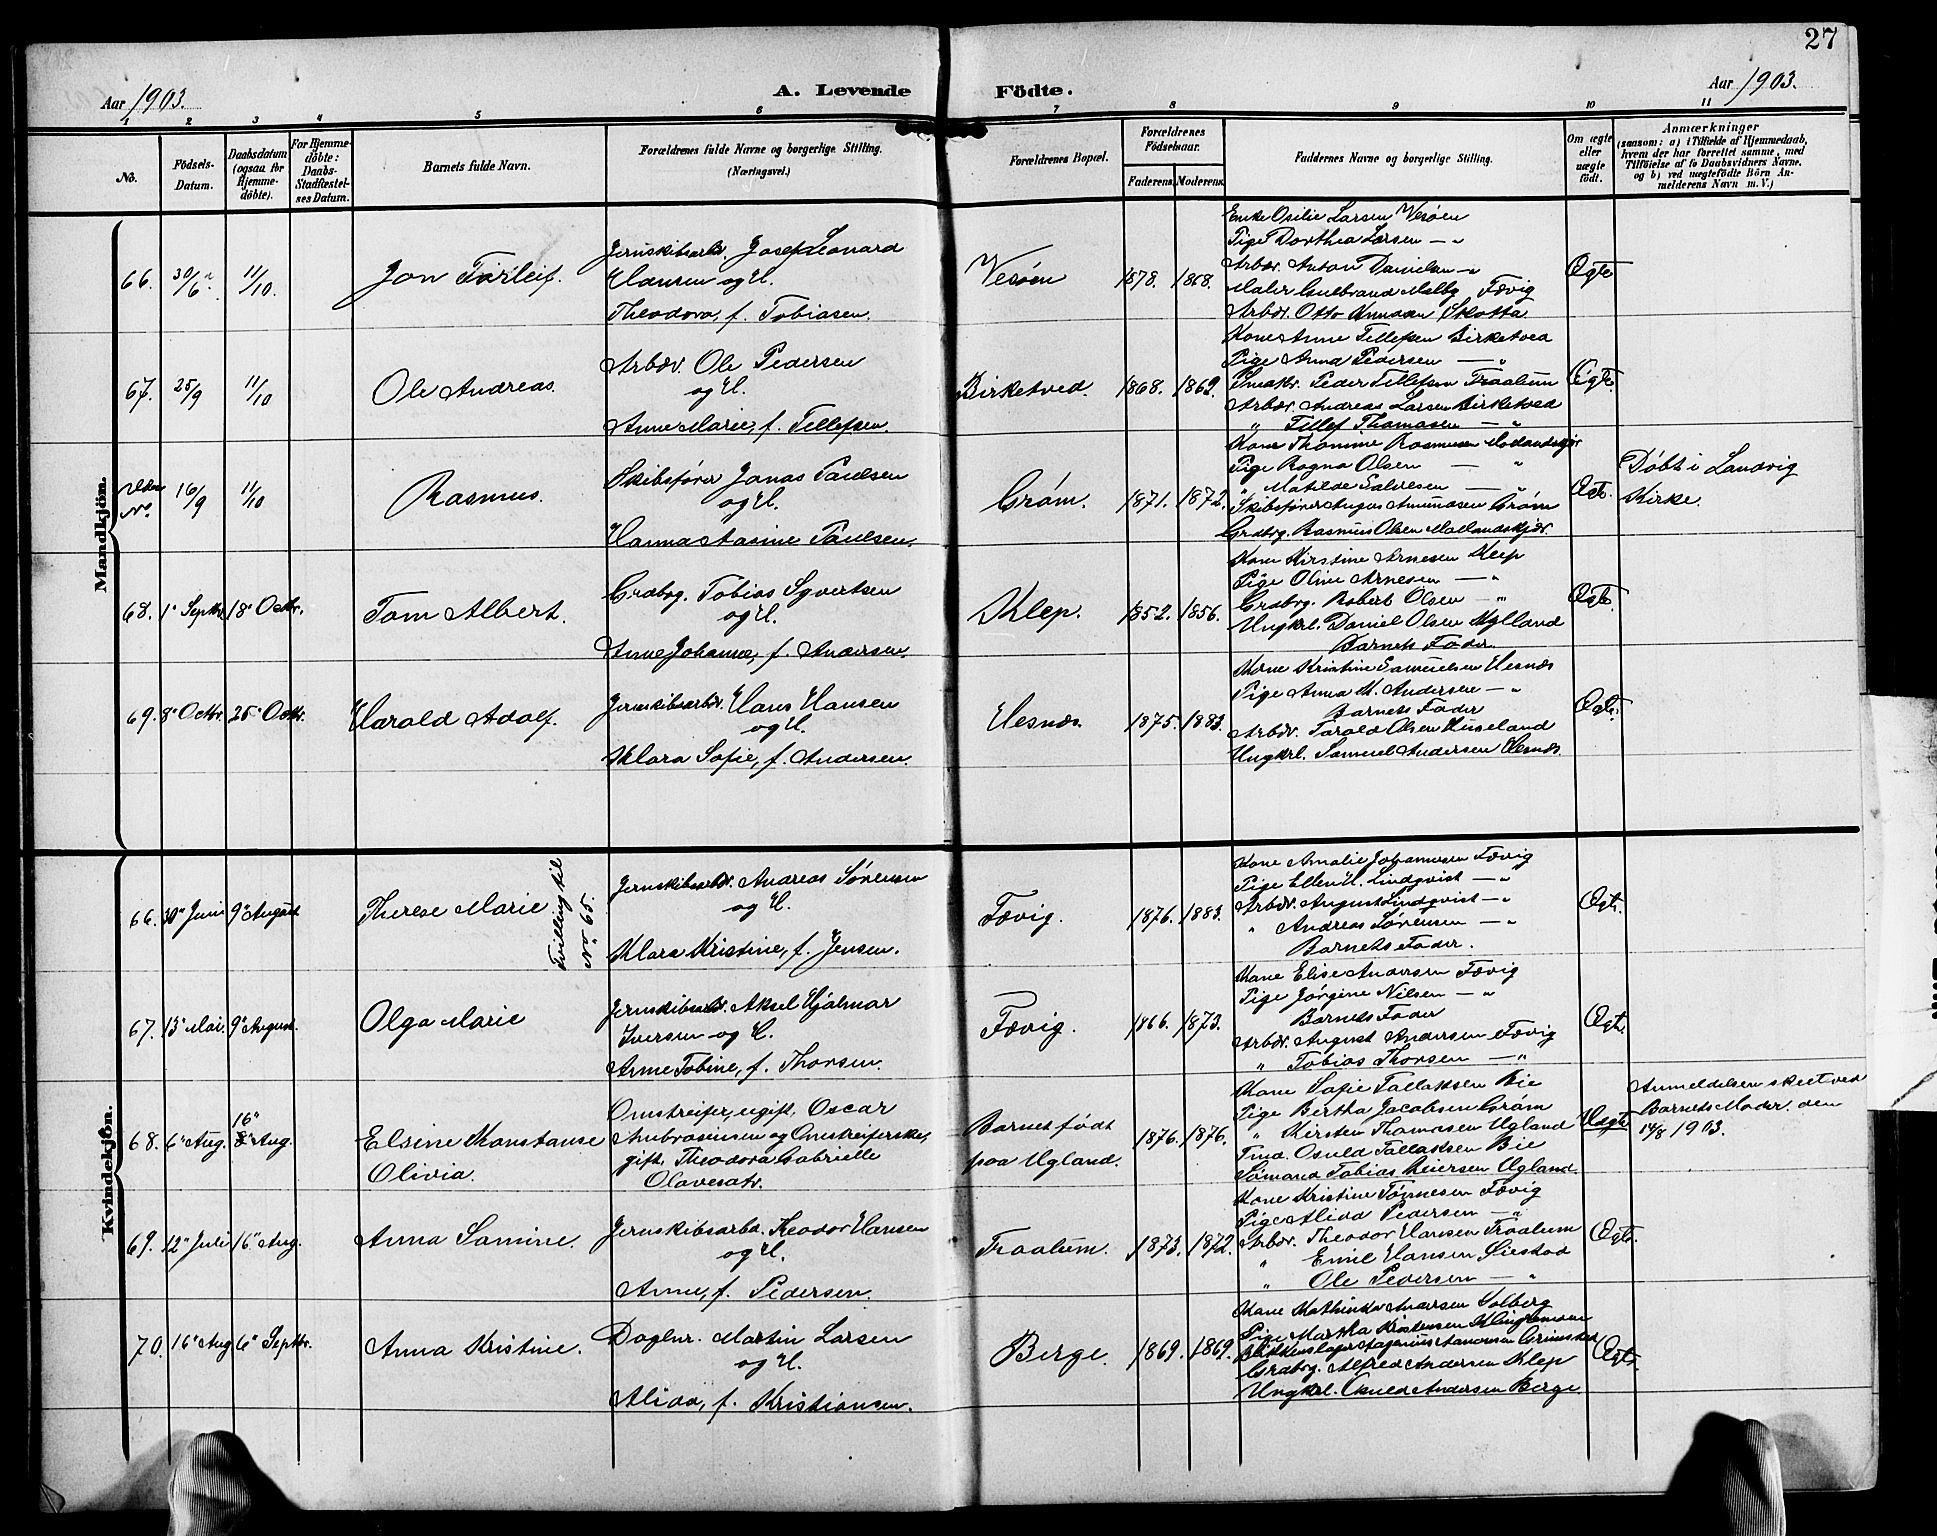 27
Aar 1903.
A. Levende Födte.
Aar 1903.
1 2 3 4 5 6 7 8 9 10 11
No.
Födsels-Datum.
Daabsdatum (ogsaa for Hjemmedöbte).
For Hjemmedöbte: Daabs-Stadfæstelses Datum.
Barnets fulde Navn.
Forældrenes fulde Navne og borgerlige Stilling. (Næringsvei.)
Forældrenes Bopæl.
Forældrenes Födselsaar.
Faderens. Moderens.
Faddernes Navne og borgerlige Stilling.
Om ægte eller uægte födt.
Anmærkninger
(saasom: a) i Tilfælde af Hjemmedaab, hvem der har forrettet samme, med Tilföielse af to Daabsvidners Navne, og b) ved uægtefödte Börn Anmelderens Navn m. V.)
Mandkjön.
66. 30/6 11/10. Jon Torleif.
Jernskibsarbr. Josef Leonard
Hansen og H.
Theodora, f. Tobiasen.
Vesøen 1878. 1868.
Enke Osilie Larsen Vesøen
Pige Dorthea Larsen — "
Arbdr. Anton Danielsen — "
Maler Gulbrand Melby Fævig
Arbdr. Otto Knudsen Skotta
Ægte
67. 25/9 11/10 Ole Andreas.
Arbdr. Ole Pedersen
og H.
Anne Marie, f. Tellefsen.
Birketved. 1868. 1862.
Kone Anne Tellefsen Birketved
Pige Anna Pedersen — "
Smakr. Peder Tellefsen Traalum
Arbdr. Andreas Larsen Birketved
" Tellef Thomasen — "
Ægte.
Uden No. 16/9 11/10 Rasmus.
Skibsfører Jonas Paulsen
og H.
Hanna Stasine Paulsen.
Grøm. 1871. 1872.
Kone Thomine Rasmusen Molandskjær
Pige Ragna Olsen — "
" Matilde Salvesen — "
Skibsfører August Amundsen Grøm
Grdbrg. Rasmus Olsen Mollandskjær.
Ægte.
Døbt i Landvig
Kirke.
68. 1" Septbr. 18" Octbr. Tom Albert.
Grdbrg. Tobias Syvertsen
og H.
Anne Johanne, f. Andersen.
Klep. 1852. 1856.
Kone Kirstine Arnesen Klep
Pige Oline Arnesen — "
Grdbrg. Robert Olsen — "
Ungkrl. Daniel Olsen Mylland
Barnets Fader.
Ægte
69. 8" Octbr. 25" Octbr. Harald Adolf.
Jernskibsarbdr. Hans Hansen
og H.
Klara Sofie, f. Andersen.
Hesnæs. 1875. 1883.
Kone Kristine Samuelsen Hesnæs
Pige Anna M. Andersen — "
Barnets Fader
Arbdr. Tarald Olsen Huseland
Ungkrl. Samuel Andersen Hesnæs.
Ægte.
Kvindekjön.
66. 30" Juni 9" August Therese Marie
Tvilling til
No 65.
Jernskibsarbdr. Andreas Sørensen
og H.
Klara Kristine, f. Jensen.
Fævig. 1876. 1883.
Kone Amalie Johannesen Fævig
Pige Ellen H. Lindqvist — "
Arbdr. August Lindqvist — "
" Andreas Sørensen — "
Barnets Fader.
Ægte.
67. 13" Mai. 9" August. Olga Marie
Jernskibsarbdr. Aksel Hjalmar
Iversen og H.
Anne Tobine, f. Thorsen.
Fævig. 1866. 1873.
Kone Elise Andersen Fævig
Pige Jørgine Nilsen — "
Barnets Fader
Arbdr. August Andersen Fævig
" Tobias Thorsen — "
Ægte.
68. 6" Aug. 16" Aug. Elsine Konstanse
Olivia.
Omstreifer, ugift, Oscar
Ambrosiusen og Omstreiferske,
gift, Theodora Gabrielle
Olavesdtr.
Barnet født
paa Ugland. 1876. 1876.
Kone Sofie Tallaksen Bie
Pige Bertha Jacobsen Grøm
" Kirsten Thomasen Ugland
Tmd. Osuld Tallaksen Bie
Sømand Tobias Reiersen Ugland
Uægte
Anmeldelsen skeet ved
Barnets Moder. den
14/8 1903.
69. 12" Juli 16" Aug. Anna Samine.
Jernskibsarbd. Theodor Hansen
og H.
Anne, f. Pedersen.
Traalum. 1873. 1872.
Kone Kristine Tønnesen Fævig
Pige Alida Pedersen — "
Arbdr. Theodor Hansen Traalum
" Emil Hansen Siestad
" Ole Pedersen — "
Ægte.
70. 16" Aug. 6" Septbr. Anna Kristine.
Daglnr. Martin Larsen
og H.
Alida, f. Kristiansen.
Berge. 1869. 1869.
Kone Mathinka Andersen Solberg
Pige Martha Kristensen
Grimstad
Grdbrg. Alfred Andersen Klep
Ungkrl. Osuld Andersen Berge
Ægte.